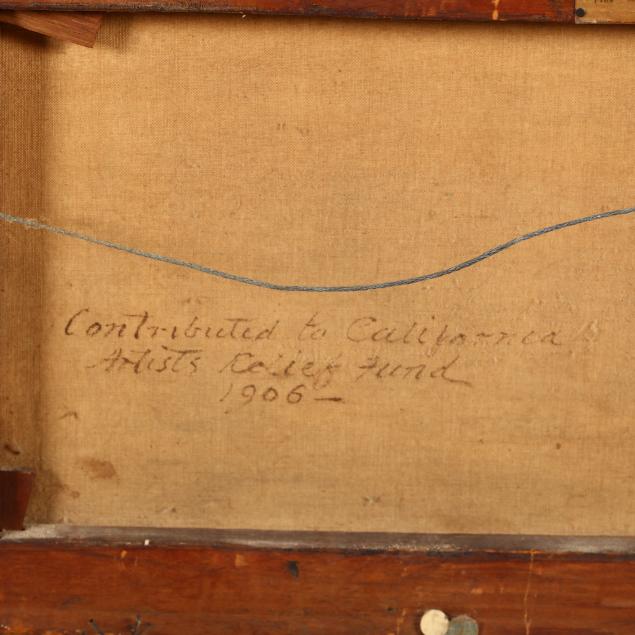 Contributed to California
Artists Relief Fund
1906 —